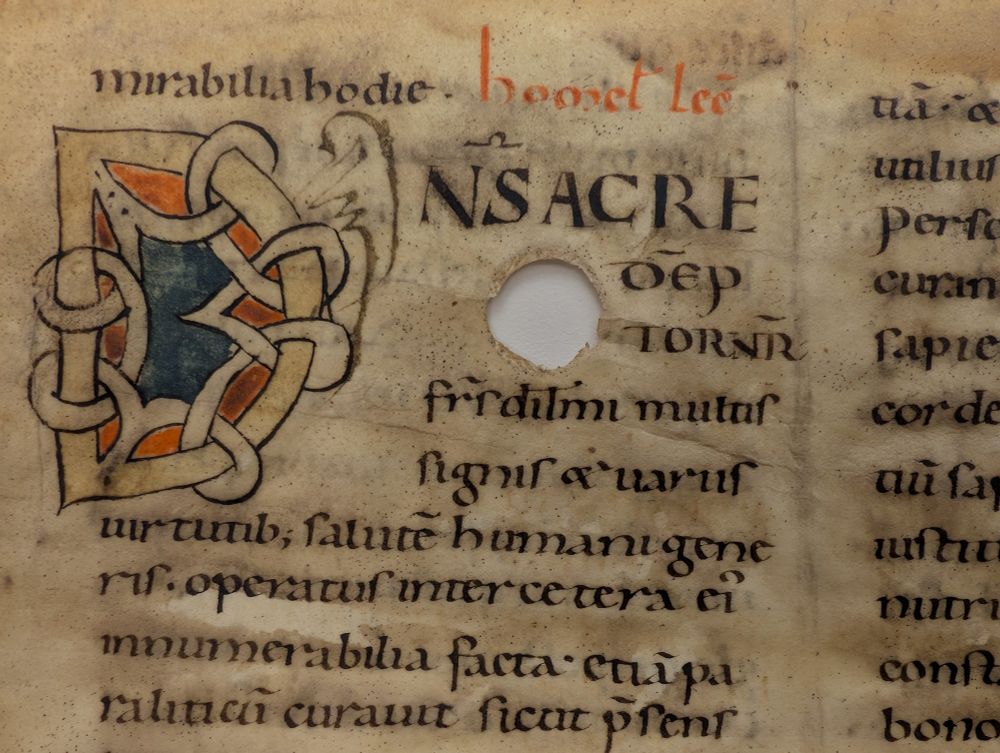 mirabilia hodie · homet lec̄
D
N̄S ACRE
ŌEP
TORNR̄
fr̄s dil̄mi multis
signis & uariis
uirtutib; salutē humani gene
ris· operatus inter cetera ei᾽
innumerabilia facta· etiā pa
raliticū curauit sicut p̄sens
tiā· &
utilius
Perſc
curan
sapie
cor de
tiū sap
iustiti
nutri
consta
bono